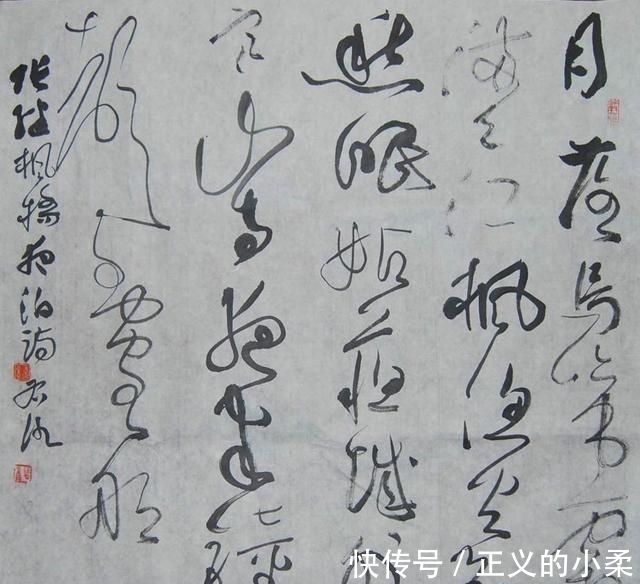 月落乌啼霜
满天江枫渔火
愁眠姑苏城外
寒山寺夜半钟
声到客船
张继枫桥夜泊诗
快传号 / 正义的小柔